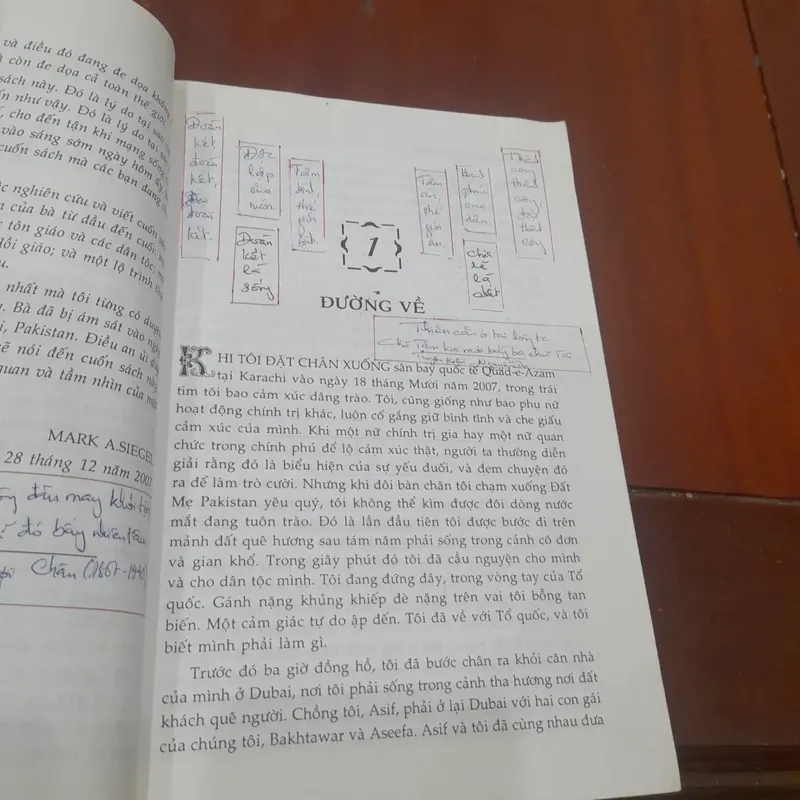 và điều đó đang đe dọa không
còn đe dọa cả toàn thế giới
sách này. Đó là lý do tại sao
như vậy. Đó là lý do tại
cho đến tận khi mạng sống
vào sáng sớm ngày hôm ấy
cuốn sách mà các bạn đang
nghiên cứu và viết cuốn
của bà từ đầu đến cuối:
tôn giáo và các dân tộc;
giáo; và một lộ trình
nhất mà tôi từng có
Bà đã bị ám sát vào
Pakistan. Điều an ủi
nói đến cuốn sách này
quan và tầm nhìn của
MARK A.SIEGEL
28 tháng 12 năm 2007
đầu may khỏi
đó bấy nhiêu
Châu (1867-1940)
Đoàn
kết
đoàn
kết,
Đại
đoàn
kết.
Độc
lập
Đoàn
kết
là
sống
Tâm
bình
thế
giới
bình.
Tâm
an,
thế
giới
an.
Hạnh
phúc
dân.
chia
rẽ
là
chết
Thành
công
thành
công
đại
thành
công
1
ĐƯỜNG VỀ
Thiện căn ở tại lòng ta
Chữ Tâm kia mới bằng ba chữ Tài
Truyện Kiều - Nguyễn Du
KHI TÔI ĐẶT CHÂN XUỐNG sân bay quốc tế Quad-e-Azam
tại Karachi vào ngày 18 tháng Mười năm 2007, trong trái
tim tôi bao cảm xúc dâng trào. Tôi, cũng giống như bao phụ nữ
hoạt động chính trị khác, luôn cố gắng giữ bình tĩnh và che giấu
cảm xúc của mình. Khi một nữ chính trị gia hay một nữ quan
chức trong chính phủ để lộ cảm xúc thật, người ta thường diễn
giải rằng đó là biểu hiện của sự yếu đuối, và đem chuyện đó
ra để làm trò cười. Nhưng khi đôi bàn chân tôi chạm xuống Đất
Mẹ Pakistan yêu quý, tôi không thể kìm được đôi dòng nước
mắt đang tuôn trào. Đó là lần đầu tiên tôi được bước đi trên
mảnh đất quê hương sau tám năm phải sống trong cảnh cô đơn
và gian khổ. Trong giây phút đó tôi đã cầu nguyện cho mình
và cho dân tộc mình. Tôi đang đứng đây, trong vòng tay của Tổ
quốc. Gánh nặng khủng khiếp đè nặng trên vai tôi bỗng tan
biến. Một cảm giác tự do ập đến. Tôi đã về với Tổ quốc, và tôi
biết mình phải làm gì.
Trước đó ba giờ đồng hồ, tôi đã bước chân ra khỏi căn nhà
của mình ở Dubai, nơi tôi phải sống trong cảnh tha hương nơi đất
khách quê người. Chồng tôi, Asif, phải ở lại Dubai với hai con gái
của chúng tôi, Bakhtawar và Aseefa. Asif và tôi đã cùng nhau đưa